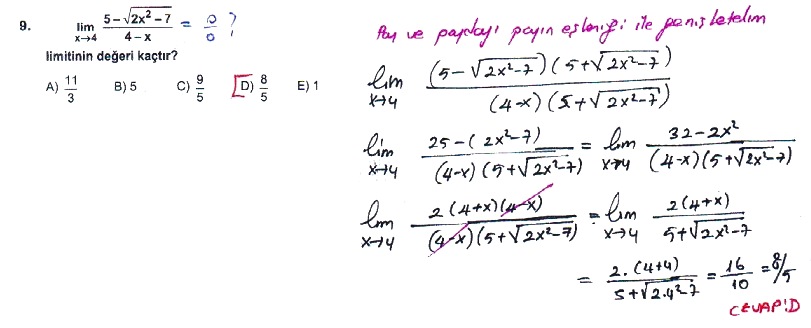 9. lim x→4 (5 − √(2x² − 7)) / (4 − x) = 0/0 ?
limitinin değeri kaçtır?
A) 11/3 B) 5 C) 9/5 D) 8/5 E) 1
Pay ve paydayı payın eşleniği ile genişletelim
lim x→4 (5 − √(2x² − 7))(5 + √(2x² − 7)) / (4 − x)(5 + √(2x² − 7))
lim x→4 25 − (2x² − 7) / (4 − x)(5 + √(2x² − 7)) = lim x→4 32 − 2x² / (4 − x)(5 + √(2x² − 7))
lim x→4 2(4 + x)(4 − x) / (4 − x)(5 + √(2x² − 7)) = lim x→4 2(4 + x) / 5 + √(2x² − 7)
= 2.(4+4) / 5 + √(2.4² − 7) = 16/10 = 8/5
CEVAP: D